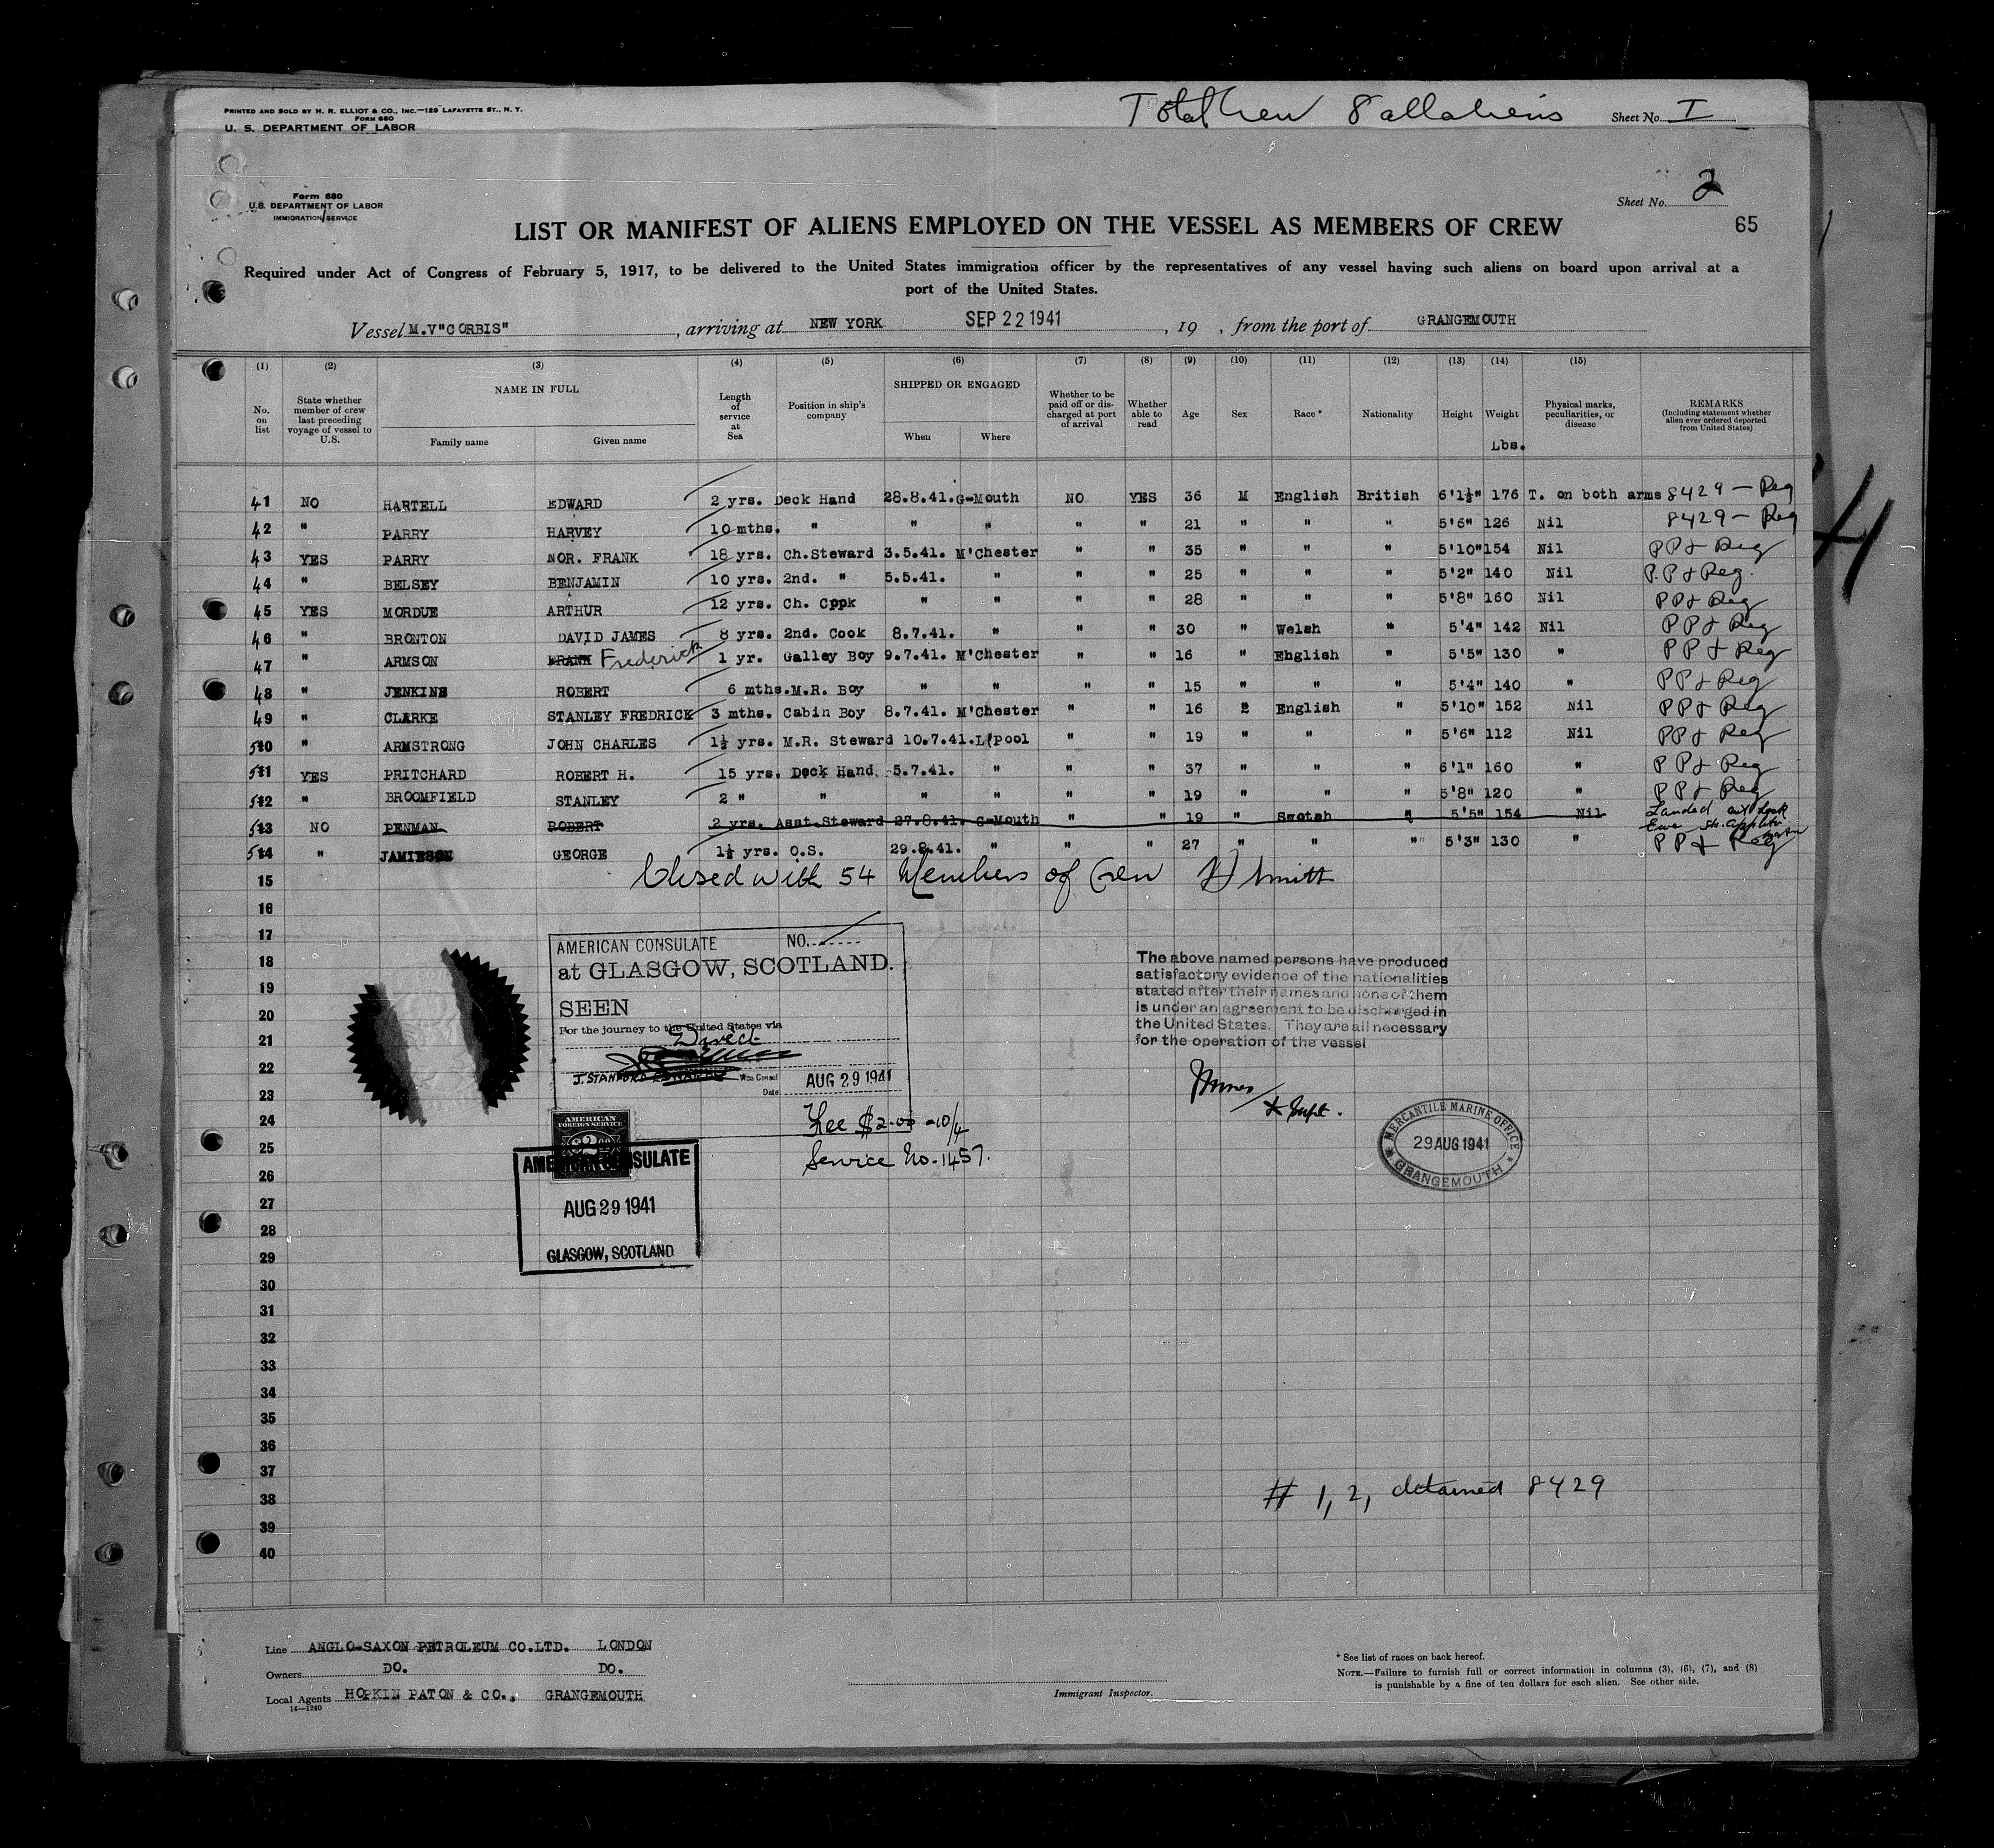 PRINTED AND SOLD BY H. R. ELLIOT & CO., INC.—129 LAFAYETTE ST., N. Y.
FORM 680
U. S. DEPARTMENT OF LABOR
Total Crew 8 all aliens
Sheet No. I
Form 680
U.S. DEPARTMENT OF LABOR
IMMIGRATION SERVICE
Sheet No. 2
LIST OR MANIFEST OF ALIENS EMPLOYED ON THE VESSEL AS MEMBERS OF CREW
65
Required under Act of Congress of February 5, 1917, to be delivered to the United States immigration officer by the representatives of any vessel having such aliens on board upon arrival at a
port of the United States.
Vessel M.V"CORBIS", arriving at NEW YORK SEP 22 1941, 19 , from the port of GRANGEMOUTH
(1) (2) (3) (4) (5) (6) (7) (8) (9) (10) (11) (12) (13) (14) (15)
No. on list
State whether member of crew last preceding voyage of vessel to U.S.
NAME IN FULL
Family name Given name
Length of service at Sea
Position in ship's company
SHIPPED OR ENGAGED
When Where
Whether to be paid off or discharged at port of arrival
Whether able to read
Age
Sex
Race *
Nationality
Height
Weight
Lbs.
Physical marks, peculiarities, or disease
REMARKS
(Including statement whether alien ever ordered deported from United States)
41 NO HARTELL EDWARD 2 yrs. Deck Hand 28.8.41. G-Mouth NO YES 36 M English British 6'1½" 176 T. on both arms 8429 — Reg
42 " PARRY HARVEY 10 mths. " " " " " 21 " " " 5'6" 126 Nil 8429 — Reg
43 YES PARRY NOR. FRANK 18 yrs. Ch.Steward 3.5.41. M'Chester " " 35 " " " 5'10" 154 Nil PP & Reg
44 " BELSEY BENJAMIN 10 yrs. 2nd. " 5.5.41. " " " 25 " " " 5'2" 140 Nil P.P & Reg.
45 YES MORDUE ARTHUR 12 yrs. Ch. Cppk " " " " 28 " " " 5'8" 160 Nil PP & Reg
46 " BRONTON DAVID JAMES 8 yrs. 2nd. Cook 8.7.41. " " " 30 " Welsh " 5'4" 142 Nil PP & Reg
47 " ARMSON FRANK Frederick 1 yr. Galley Boy 9.7.41. M'Chester " " 16 " Ehglish " 5'5" 130 " PP & Reg
48 " JENKINS ROBERT 6 mths. M.R. Boy " " " " 15 " " " 5'4" 140 " PP & Reg
49 " CLARKE STANLEY FREDRICK 3 mths. Cabin Boy 8.7.41. M'Chester " " 16 " English " 5'10" 152 Nil PP & Reg
50 " ARMSTRONG JOHN CHARLES 1½ yrs. M.R. Steward 10.7.41. L'pool " " 19 " " " 5'6" 112 Nil PP & Reg
51 YES PRITCHARD ROBERT H. 15 yrs. Deck Hand 5.7.41. " " " 37 " " " 6'1" 160 " PP & Reg
52 " BROOMFIELD STANLEY 2 " " " " " " 19 " " " 5'8" 120 " PP & Reg
53 NO PENMAN ROBERT 2 yrs. Asst.Steward 27.8.41. G-Mouth " " 19 " Scotch " 5'5" 154 Nil Landed at Loch Ewe
54 " JAMIESON GEORGE 1½ yrs. O.S. 29.8.41. " " " 27 " " " 5'3" 130 " PP & Reg
15 Closed with 54 Members of Crew H Smith
16
17
18
19
20
21
22
23
24
25
26
27
28
29
30
31
32
33
34
35
36
37
38
39
40
AMERICAN CONSULATE NO.
at GLASGOW, SCOTLAND.
SEEN
For the journey to the United States via
Direct
J. STANFORD EDWARDS Vice Consul
Date AUG 29 1941
Fee $2.00 = 10/4
Service No. 1457.
AMERICAN
FOREIGN SERVICE
$2.00
AMERICAN CONSULATE
AUG 29 1941
GLASGOW, SCOTLAND
The above named persons have produced
satisfactory evidence of the nationalities
stated after their names and none of them
is under an agreement to be discharged in
the United States. They are all necessary
for the operation of the vessel
Supt.
MERCANTILE MARINE OFFICE
29 AUG 1941
GRANGEMOUTH
# 1, 2, detained 8429
Line ANGLO-SAXON PETROLEUM CO.LTD. LONDON
Owners DO. DO.
Local Agents HOPKIN PATON & CO., GRANGEMOUTH
14—1240
Immigrant Inspector.
* See list of races on back hereof.
NOTE.—Failure to furnish full or correct information in columns (3), (6), (7), and (8)
is punishable by a fine of ten dollars for each alien. See other side.